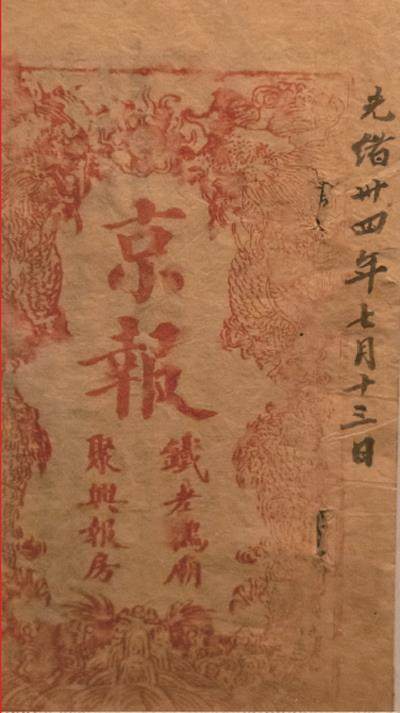 光緒卅四年七月十三日
京報
鐵老鸛廟
聚興報房